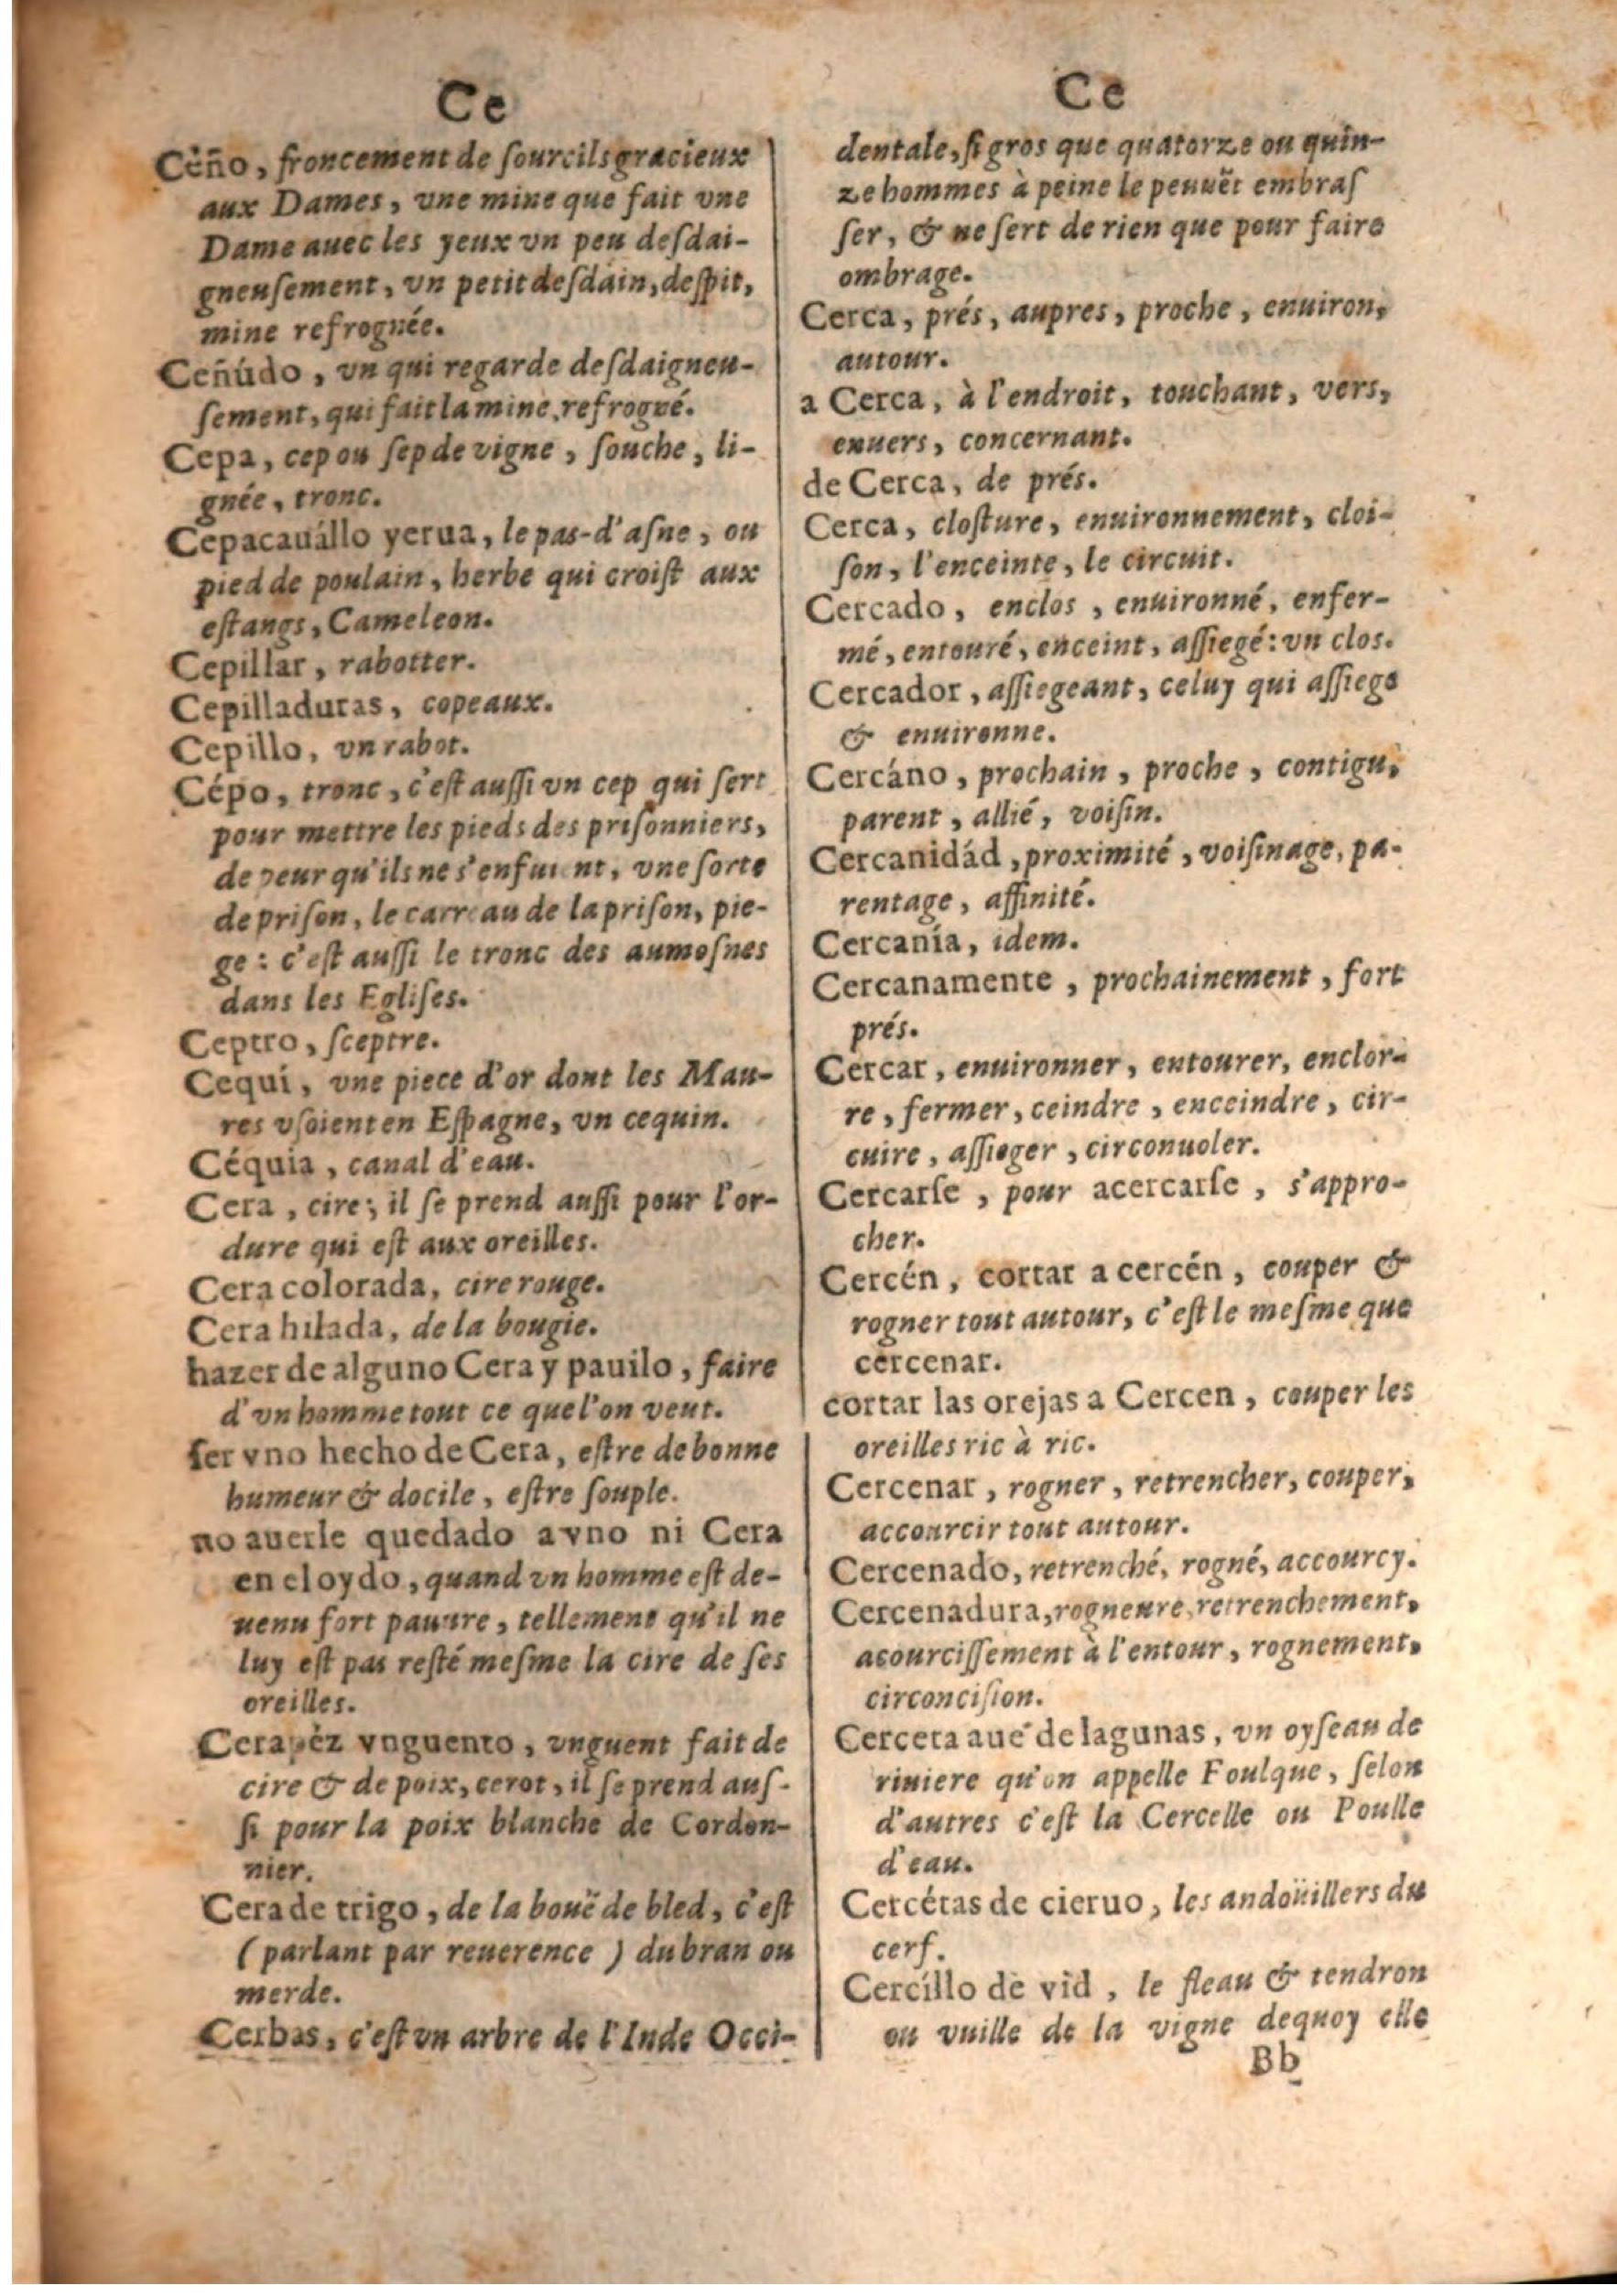 Ce
Cèño, froncement de ſourcils gracieux
aux Dames, vne mine que fait vne
Dame auec les yeux vn peu deſdai-
gneuſement, vn petit deſdain, deſpit,
mine refrognée.
Ceñúdo, vn qui regarde deſdaigneu-
ſement, qui fait la mine refrogné.
Cepa, cep ou ſep de vigne, ſouche, li-
gnée, tronc.
Cepacauállo yerua, le pas-d'aſne, ou
pied de poulain, herbe qui croiſt aux
eſtangs, Cameleon.
Cepillar, rabotter.
Cepilladuras, copeaux.
Cepillo, vn rabot.
Cépo, tronc, c'eſt auſſi vn cep qui ſert
pour mettre les pieds des priſonniers,
de peur qu'ils ne s'enfuient, vne ſorte
de priſon, le carreau de la priſon, pie-
ge: c'eſt auſſi le tronc des aumoſnes
dans les Egliſes.
Ceptro, ſceptre.
Cequí, vne piece d'or dont les Mau-
res vſoient en Eſpagne, vn cequin.
Céquia, canal d'eau.
Cera, cire; il ſe prend auſſi pour l'or-
dure qui eſt aux oreilles.
Cera colorada, cire rouge.
Cera hilada, de la bougie.
hazer de alguno Cera y pauilo, faire
d'vn homme tout ce que l'on veut.
ſer vno hecho de Cera, eſtre de bonne
humeur & docile, eſtre ſouple.
no auerle quedado a vno ni Cera
en el oydo, quand vn homme eſt de-
uenu fort pauure, tellement qu'il ne
luy eſt pas reſté meſme la cire de ſes
oreilles.
Cerapèz vnguento, vnguent fait de
cire & de poix, cerot, il ſe prend auſ-
ſi pour la poix blanche de Cordon-
nier.
Cera de trigo, de la bouë de bled, c'eſt
(parlant par reuerence) du bran ou
merde.
Cerbas, c'eſt vn arbre de l'Inde Occi-
Ce
dentale, ſi gros que quatorze ou quin-
ze hommes à peine le peuuẽt embraſ
ſer, & ne ſert de rien que pour faire
ombrage.
Cerca, prés, aupres, proche, enuiron,
autour.
a Cerca, à l'endroit, touchant, vers,
enuers, concernant.
de Cerca, de prés.
Cerca, cloſture, enuironnement, cloi-
ſon, l'enceinte, le circuit.
Cercado, enclos, enuironné, enfer-
mé, entouré, enceint, aſſiegé: vn clos.
Cercador, aſſiegeant, celuy qui aſſiege
& enuironne.
Cercáno, prochain, proche, contigu,
parent, allié, voiſin.
Cercanidád, proximité, voiſinage, pa-
rentage, affinité.
Cercanía, idem.
Cercanamente, prochainement, fort
prés.
Cercar, enuironner, entourer, enclor-
re, fermer, ceindre, enceindre, cir-
cuire, aſſieger, circonuoler.
Cercarſe, pour acercarſe, s'appro-
cher.
Cercén, cortar a cercén, couper &
rogner tout autour, c'eſt le meſme que
cercenar.
cortar las orejas a Cercen, couper les
oreilles ric à ric.
Cercenar, rogner, retrencher, couper,
accourcir tout autour.
Cercenado, retrenché, rogné, accourcy.
Cercenadura, rogneure, retrenchement,
acourciſſement à l'entour, rognement,
circonciſion.
Cerceta aue de lagunas, vn oyſeau de
riuiere qu'on appelle Foulque, ſelon
d'autres c'eſt la Cercelle ou Poulle
d'eau.
Cercétas de cieruo, les andoüillers du
cerf.
Cercíllo de vid, le fleau & tendron
ou vuille de la vigne dequoy elle
Bb